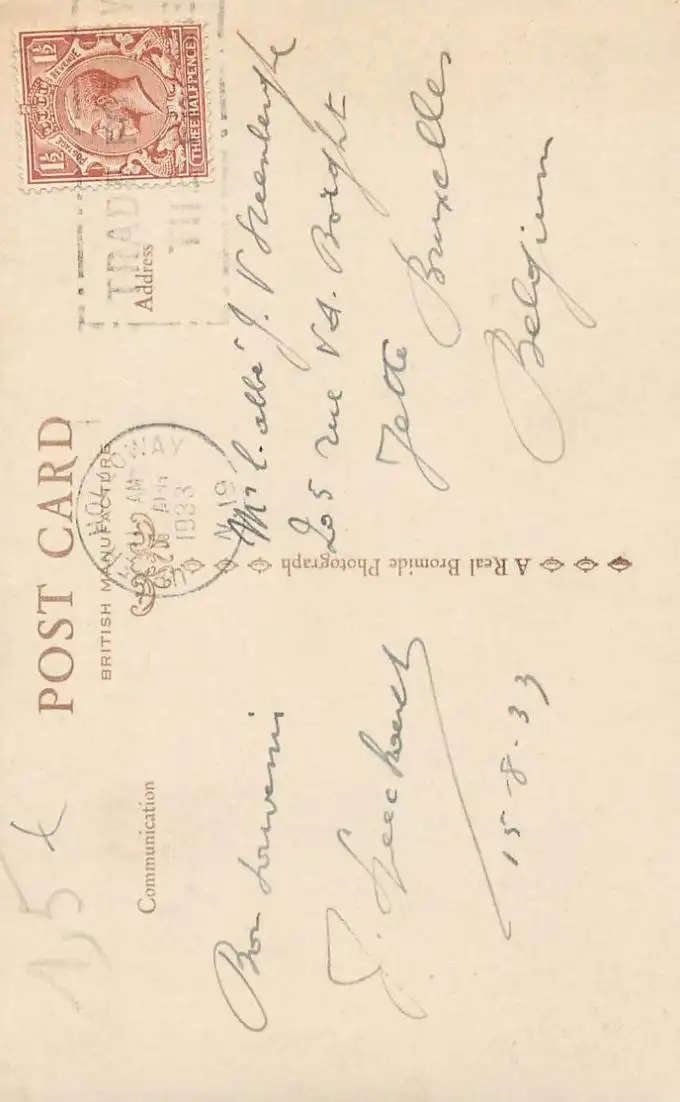 POST CARD
BRITISH MANUFACTURE
Communication
Address
Bon souvenir
15-8-33
A Real Bromide Photograph
Mr l'abbé J. V
205 rue Vd. Borght
Jette Bruxelles
Belgium
1½ 1½
POSTAGE REVENUE
THREE HALFPENCE
TRAD
HOLLOWAY
AM
1933
N.19
1,5